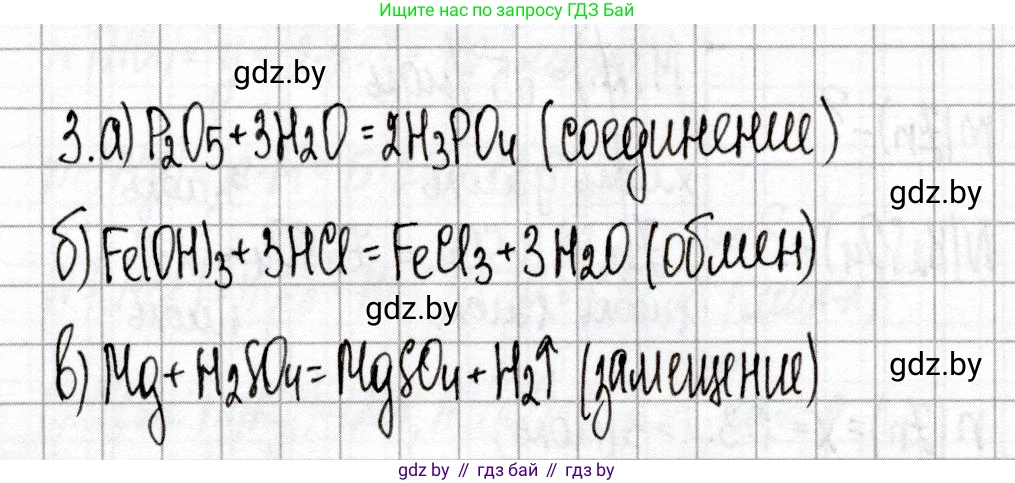 Ищите нас по запросу ГДЗ Бай
gdz.by
3. а) P₂O₅ + 3H₂O = 2H₃PO₄ (соединение)
gdz.by
б) Fe(OH)₃ + 3HCl = FeCl₃ + 3H₂O (обмен)
gdz.by
в) Mg + H₂SO₄ = MgSO₄ + H₂↑ (замещение)
gdz.by
gdz by // гдз бай // гдз by